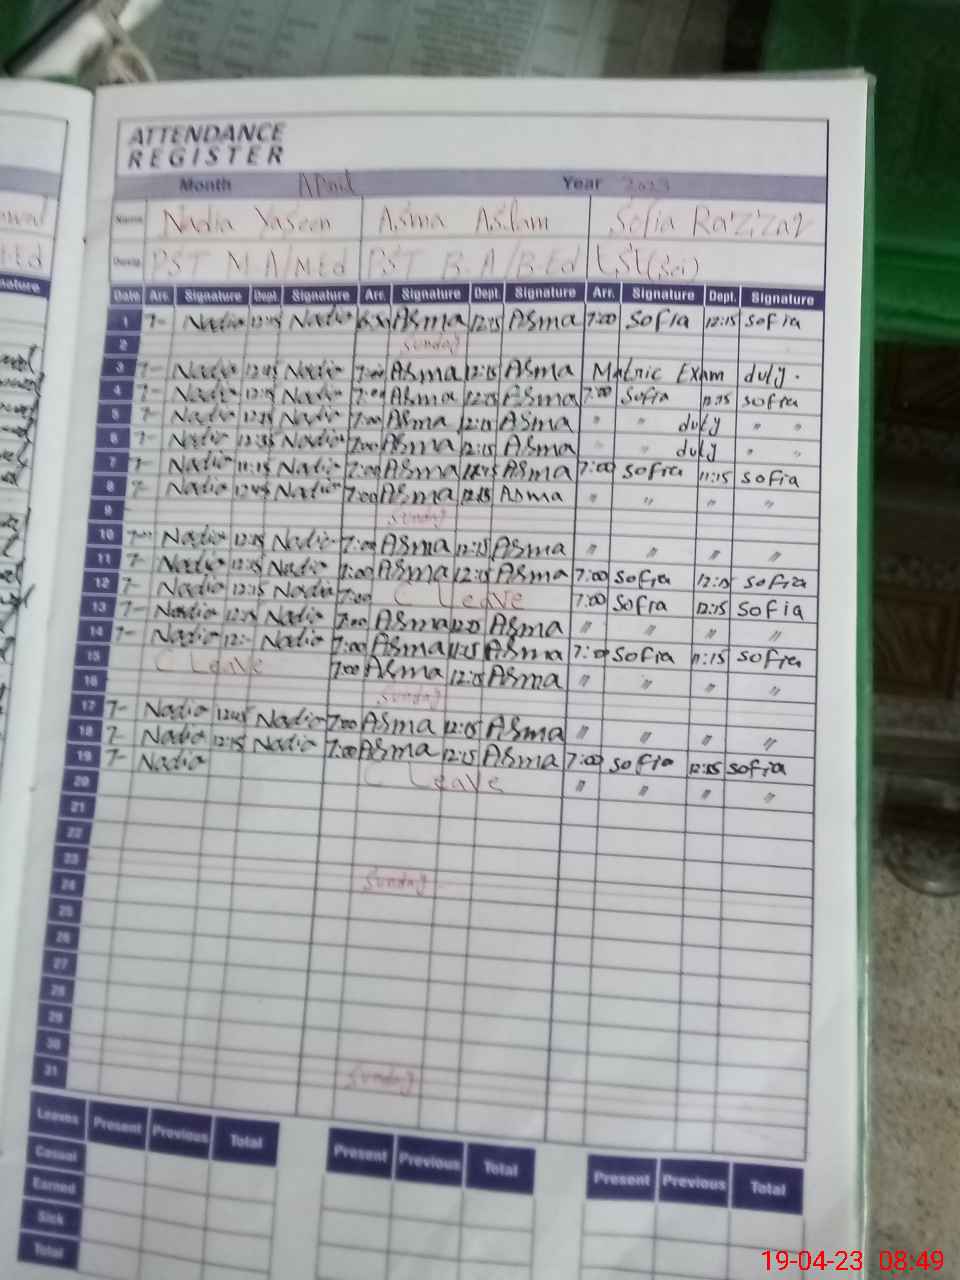 ATTENDANCE
REGISTER
Month April Year 2023
Name Nadia Yaseen Asma Aslam Sofia Razzaq
PST M.A/M.Ed PST B.A/B.Ed
Date Arr. Signature Dept. Signature Arr. Signature Dept. Signature Arr. Signature Dept. Signature
1 7- Nadia Nadia Asma 12:15 Asma 7:00 Sofia 12:15 Sofia
2 Sunday
3 7- Nadia 12:45 Nadia 7:00 Asma 12:15 Asma Matric Exam duty.
4 7- Nadia Nadia 7:00 Asma 12:15 Asma 7:00 Sofia 12:15 Sofia
5 7- Nadia Nadia 7:00 Asma 12:15 Asma " " duly " "
6 7- Nadia Nadia 7:00 Asma 12:15 Asma " " duly " "
7 7- Nadia 11:15 Nadia 7:00 Asma Asma 7:00 Sofia 11:15 Sofia
8 7- Nadia 12:45 Nadia 7:00 Asma 12:15 Asma " " " "
9 Sunday
10 7- Nadia 12:15 Nadia 7:00 Asma 12:15 Asma " " " "
11 7- Nadia 12:15 Nadia 7:00 Asma 12:15 Asma 7:00 Sofia 12:15 Sofia
12 7- Nadia 12:15 Nadia 7:00 C Leave 7:00 Sofia 12:15 Sofia
13 7- Nadia 12:15 Nadia 7:00 Asma Asma " " " "
14 7- Nadia 12:- Nadia 7:00 Asma 11:15 Asma 7:00 Sofia 11:15 Sofia
15 C Leave 7:00 Asma 12:15 Asma " " " "
16 Sunday
17 7- Nadia 12:45 Nadia 7:00 Asma 12:15 Asma " " " "
18 7- Nadia 12:15 Nadia 7:00 Asma 12:15 Asma 7:00 Sofia Sofia
19 7- Nadia C Leave " " " "
20
21
22
23
24 Sunday
25
26
27
28
29
30
31 Sunday
Leaves Present Previous Total Present Previous Total Present Previous Total
Casual
Earned
Sick
Total
19-04-23 08:49